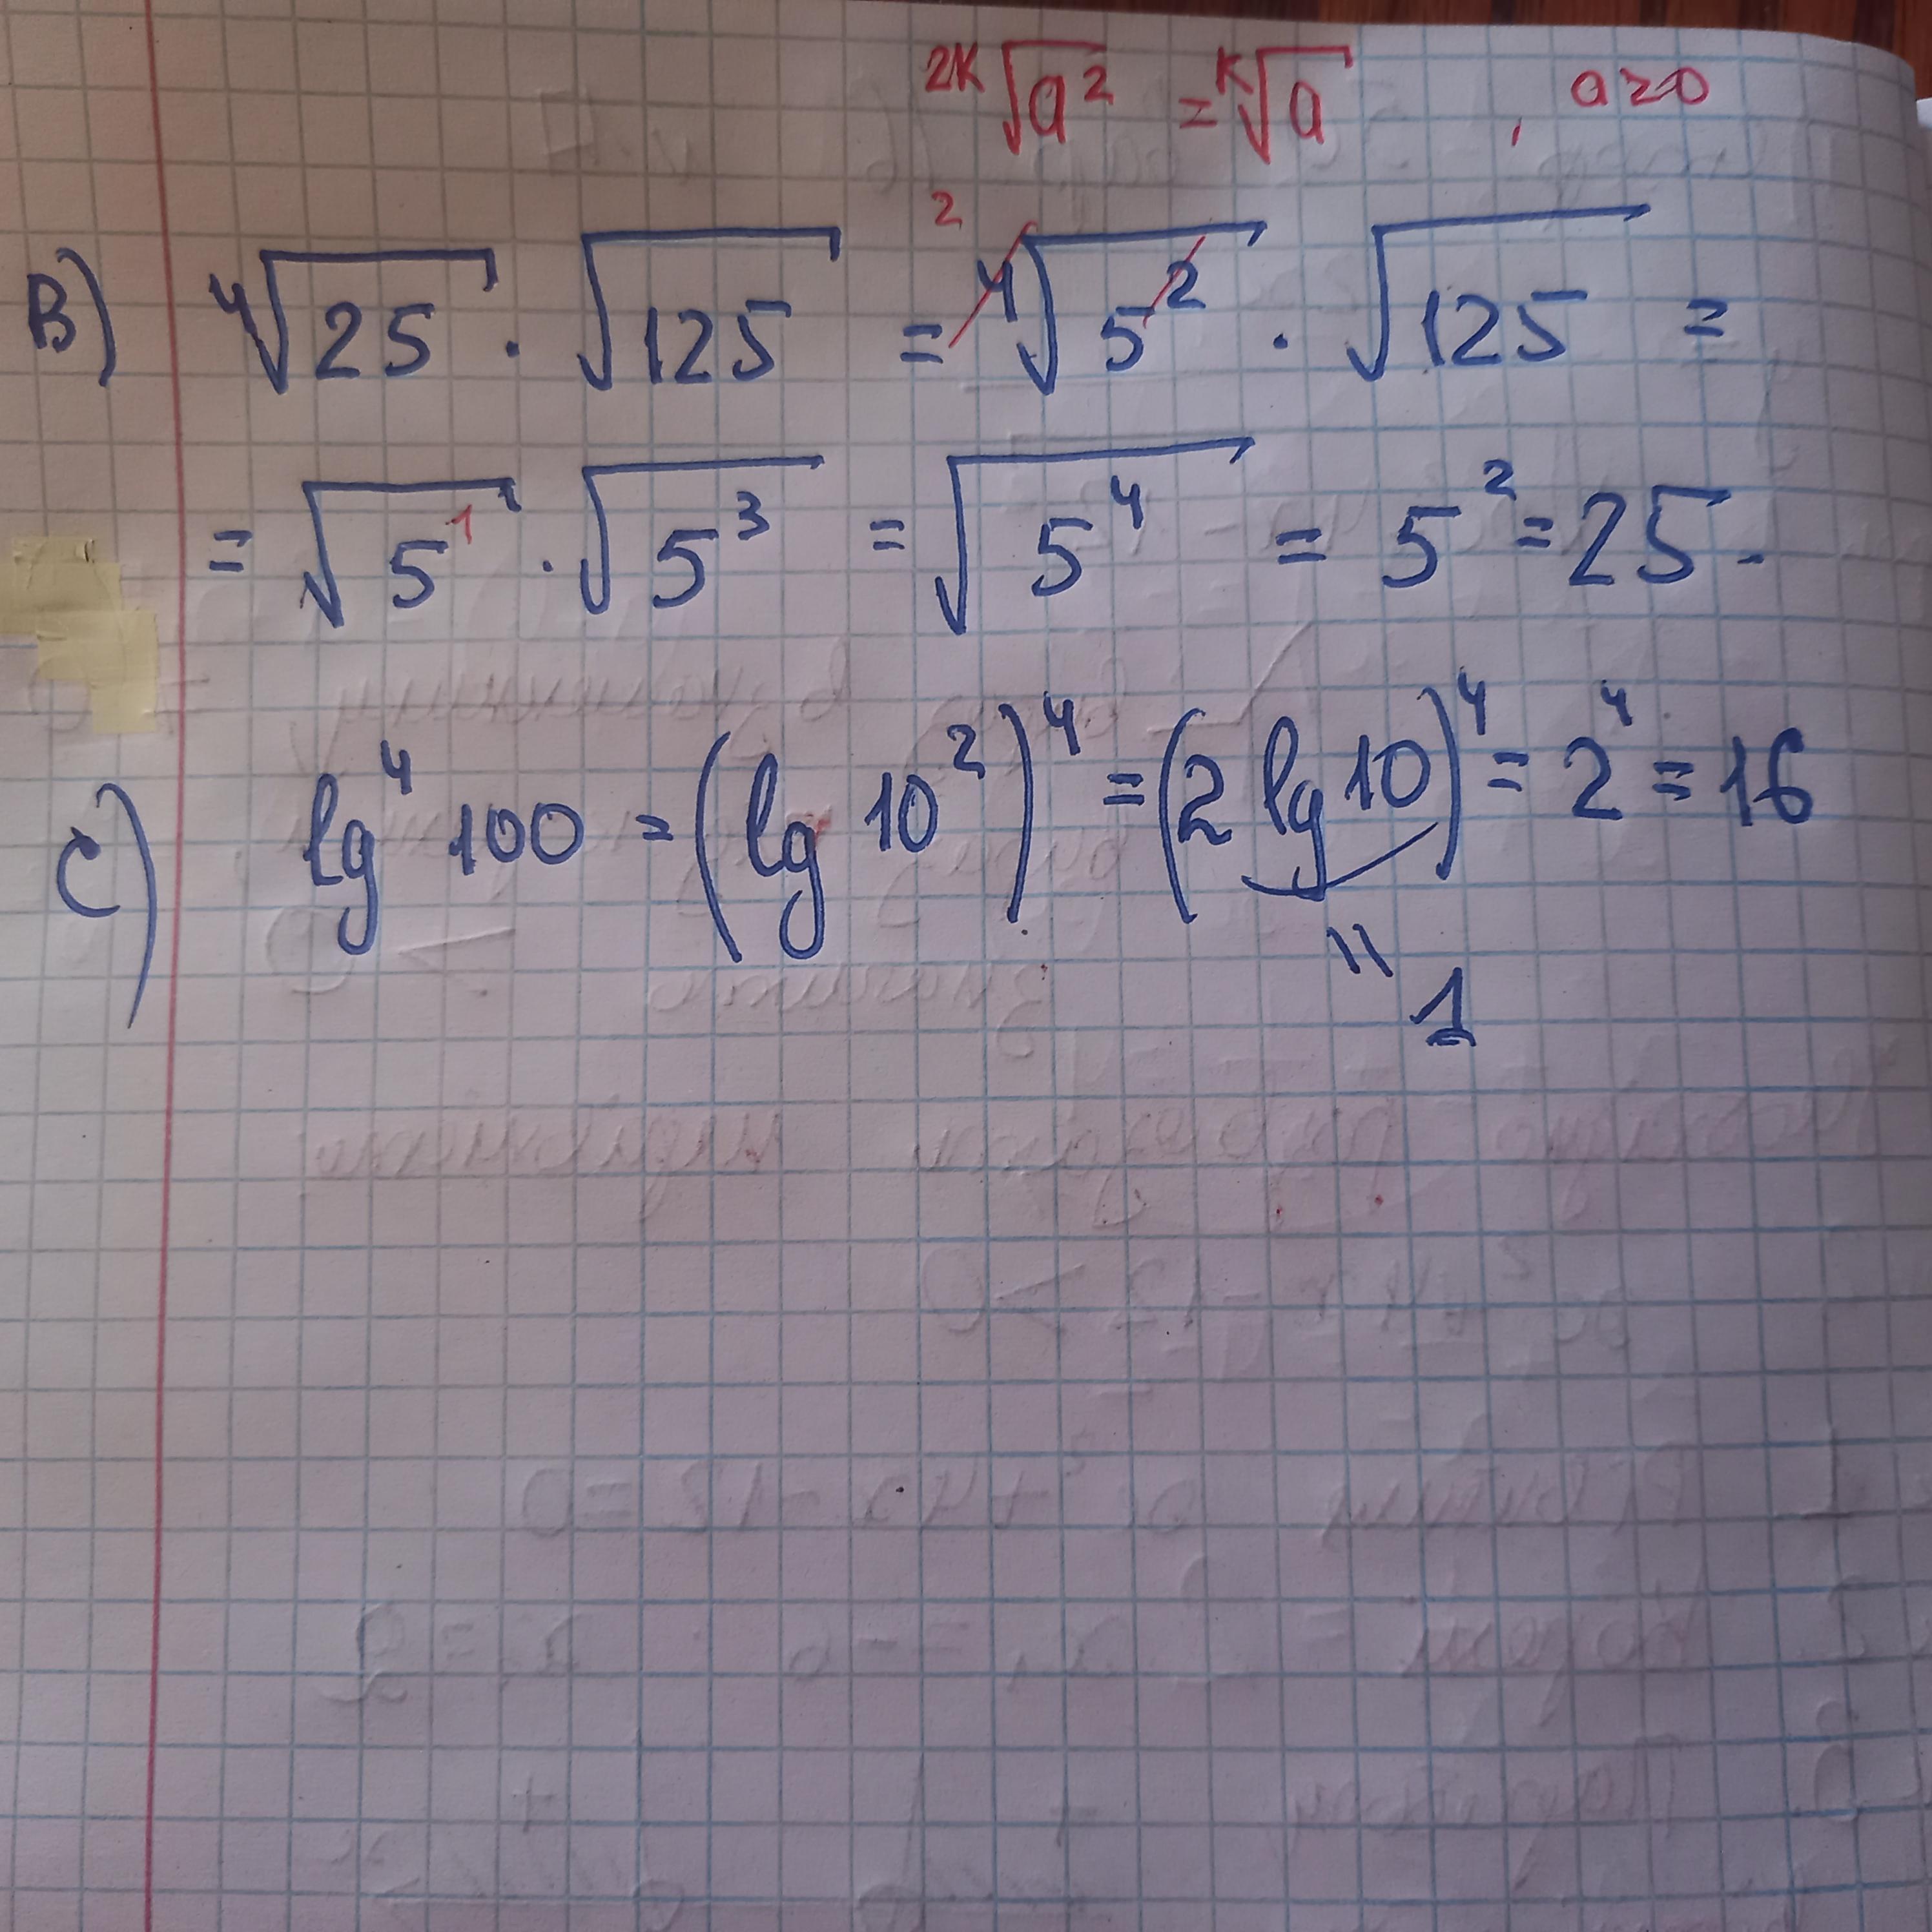 2K√a² = K√a , a≥0
B) ⁴√25 · √125 = ²⁴√5² · √125 =
= √5¹ · √5³ = √5⁴ = 5² = 25.
C) lg⁴ 100 = (lg 10²)⁴ = (2 lg 10)⁴ = 2⁴ = 16
"
1